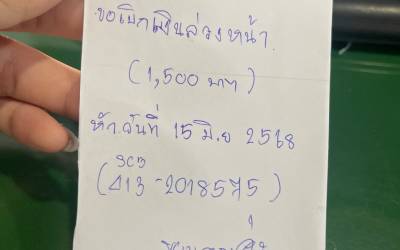 ขอเบิกเงินล่วงหน้า
(1,500 บาท)
หัก.วันที่ 15 มิ.ย 2568
SCB
(413-2018575)